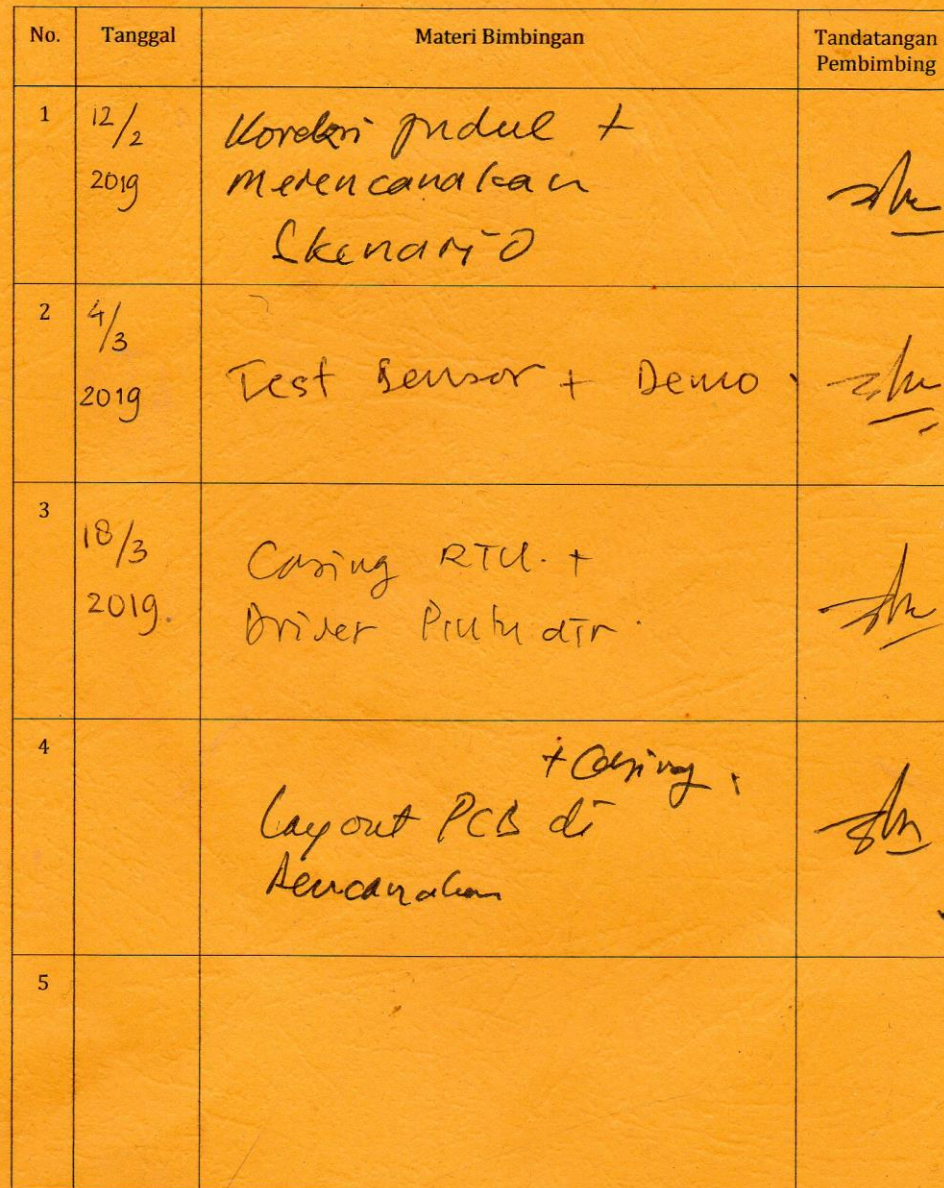 No. Tanggal Materi Bimbingan Tandatangan
Pembimbing
1 12/2 Koreksi judul +
2019 merencanakan
Skenario
2 4/3
2019 Test Sensor + Demo
3
18/3 Casing RTU. +
2019. Driver Pintu air.
4
+ Casing
Layout PCB di
rencanakan
5